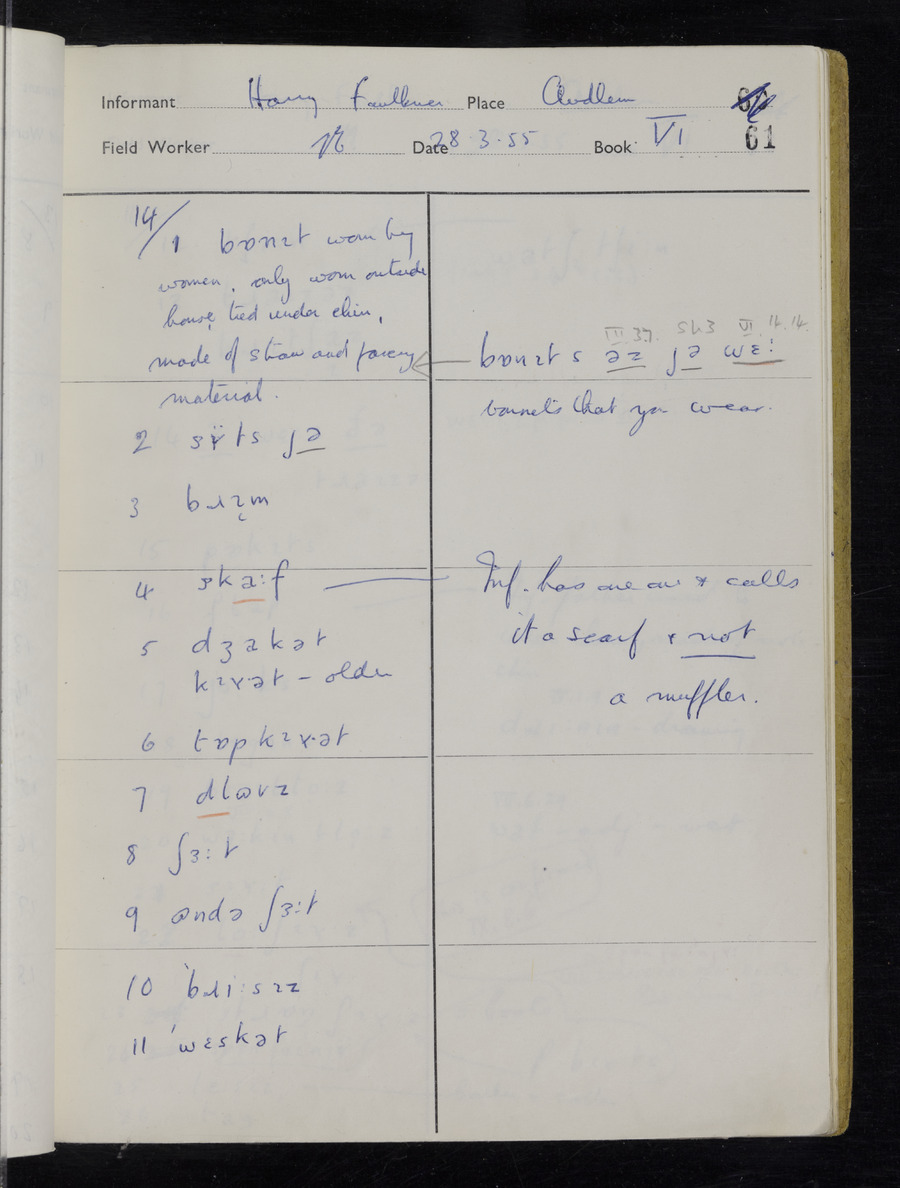 Informant Harry Faulkner Place Audlem
61
Field Worker Date 28.3.55 Book VI
14/
1 bɒnɪt worn by
women, only worn outside
house, tied under chin,
made of straw and fancy
material.
III. 39. SH3 VI. 14. 14.
bɒnɪts əz jə wɛ:
bonnets that you wear.
2 sɪ̈ts jə
3 bɹɪm
4 skaːf
Inf. has one on & calls
it a scarf & not
a muffler.
5 dʒakət
kɪɤət – older
6 tɒpkɪɤ·ət
7 dlɷvz
8 ʃɜːt
9 ɷndə ʃɜːt
10 ˈbɹiːsɪz
11 ˈwɛskət